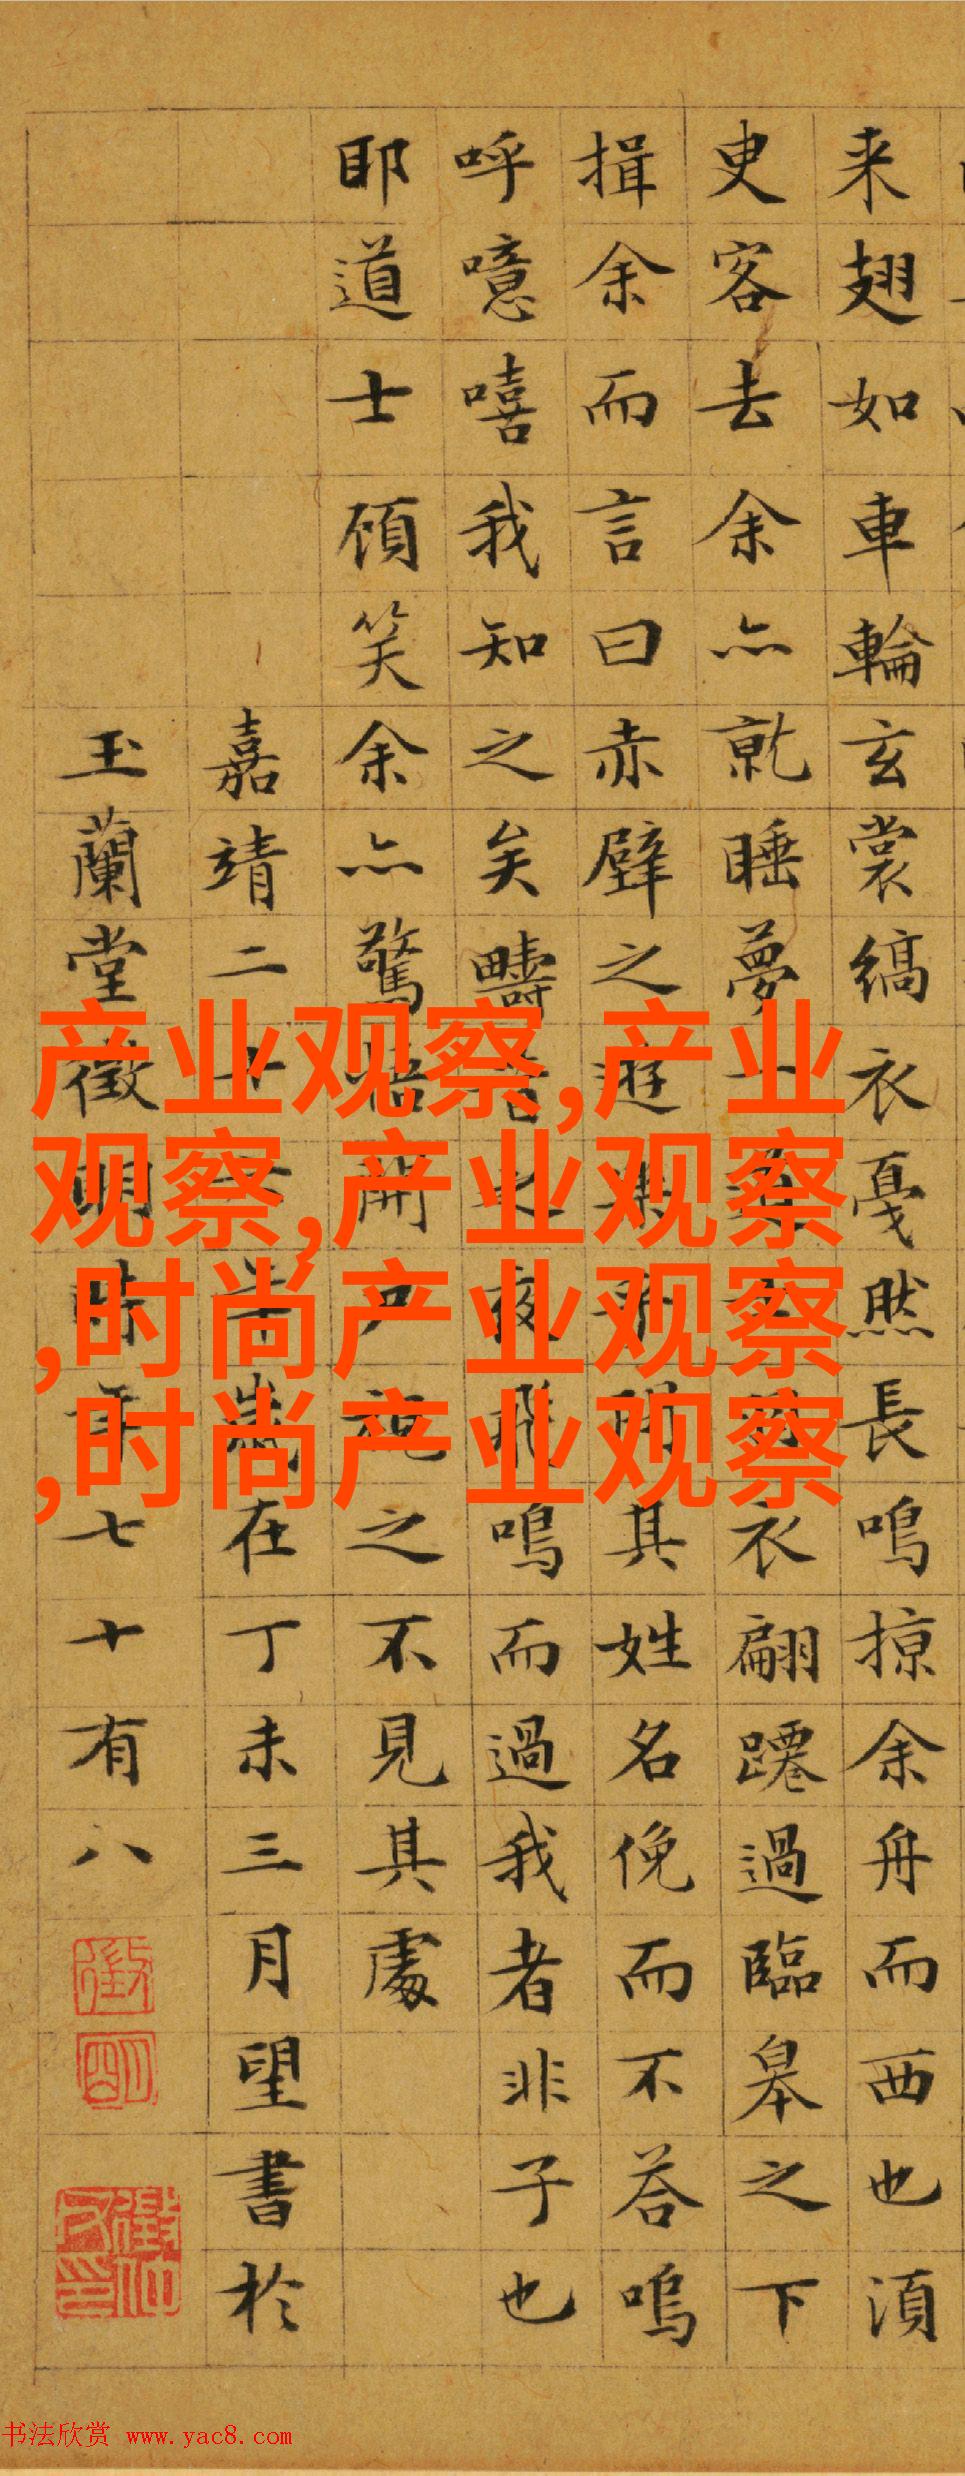 来翅如車輪玄裳縞衣戛然長鳴掠余舟而西也湏
叓客去余亦就睡夢一衣翩躚過臨皋之下
揖余而言曰赤壁之遊樂乎問其姓名俛而不荅嗚
呼噫嘻我知之矣疇昔之夜飛鳴而過我者非子也
耶道士頋笑余亦驚悟開戶視之不見其處
嘉靖二年歲在丁未三月望書於
玉蘭堂徵明時年七十有八
产业观察,产业
观察,产业观察
,时尚产业观察
,时尚产业观察
书法欣赏 www.yac8.com